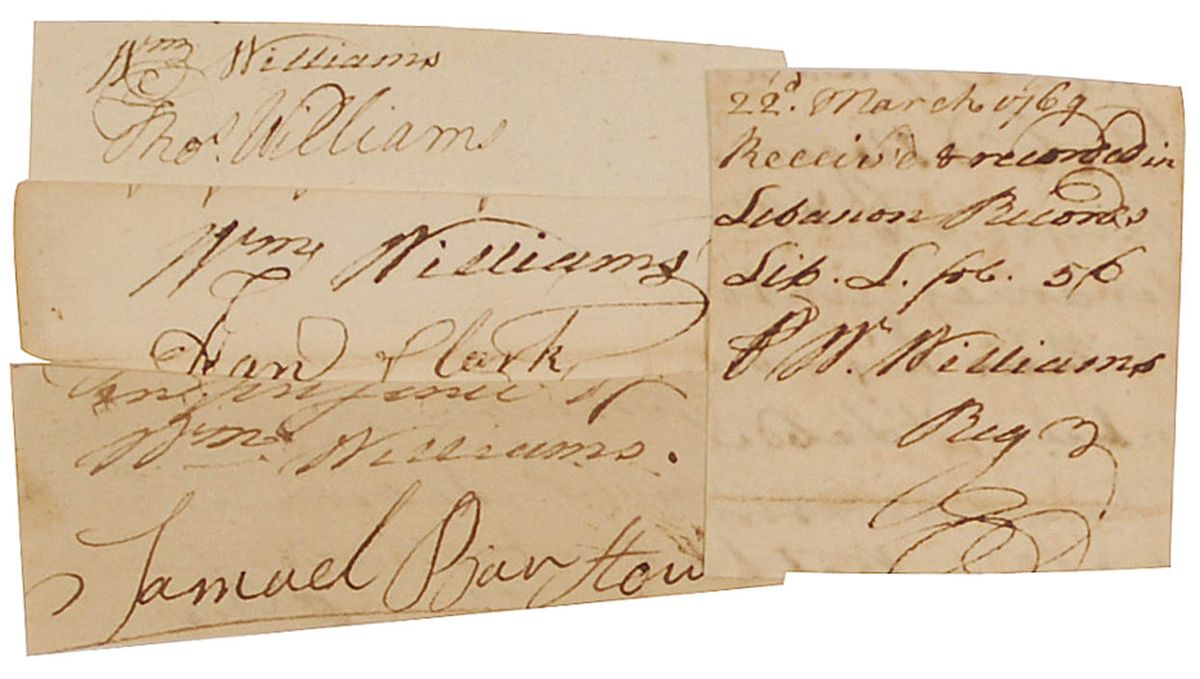 Wm Williams
Thos. Williams
Wm Williams
Clark
in presence of
Wm Williams.
Samuel
22d. March 1769
Receiv'd & recorded in
Lebanon Records
Lib. L. fol. 56
Pr Wm. Williams
Regr